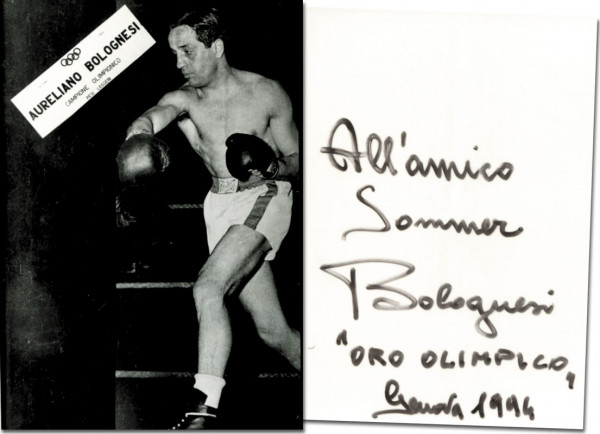 AURELIANO BOLOGNESI
CAMPIONE OLIMPIONICO
PESI LEGGERI
All'amico
Sommer
Bolognesi
"ORO OLIMPICO"
Genova 1994